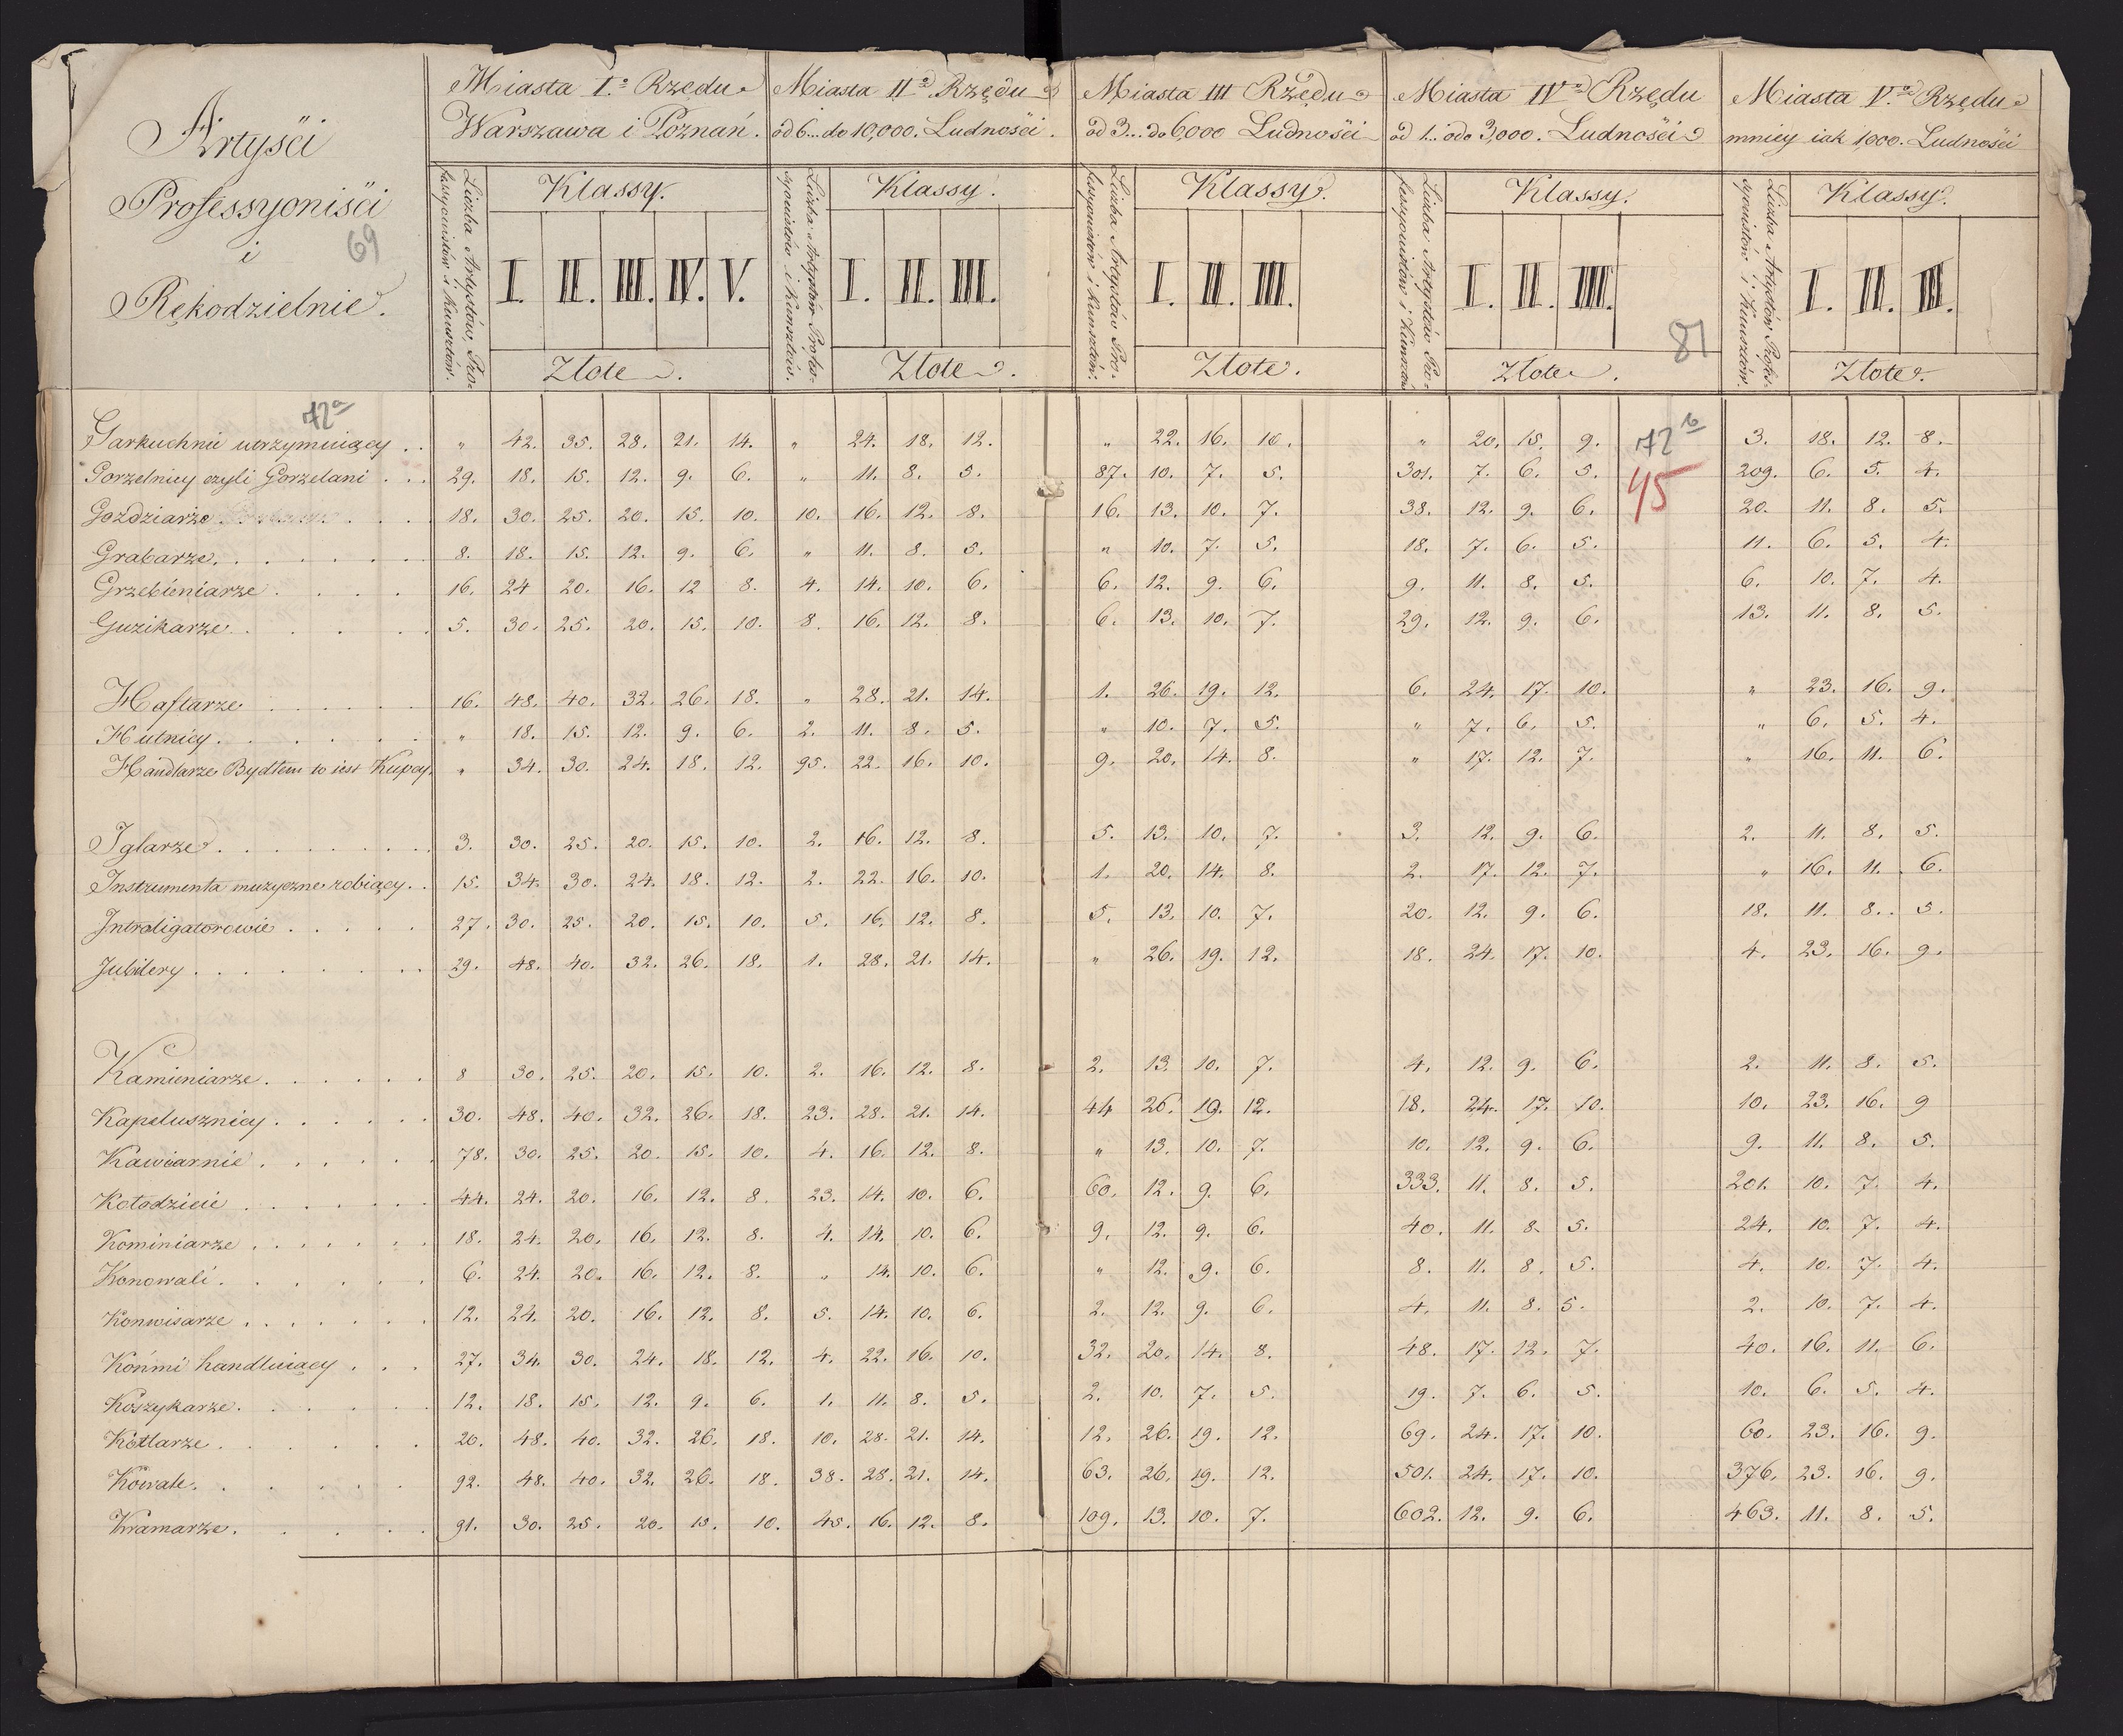 Artyści
Professyoniści
i
Rękodzielnie.
69
Miasta I.o Rzędu
Warszawa i Poznań.
Miasta IIo Rzędu
od 6... do 10,000. Ludności.
Miasta III Rzędu
od 3... do 6,000 Ludności
Miasta IVo Rzędu
od 1... do 3,000. Ludności
Miasta V.o Rzędu
mniey iak 1,000. Ludności
Liczba Artystów, Professyonistów i Kunsztów.
Klassy.
I. II. III. IV. V.
Złote.
Liczba Artystów Professyonistów i Kunsztów.
Klassy.
I. II. III.
Złote.
Liczba Artystów Professyonistów i Kunsztów.
Klassy.
I. II. III.
Złote.
Liczba Artystów Professyonistów i Kunsztów
Klassy.
I. II. III.
Złote.
81
Liczba Artystów Professyonistów i Kunsztów.
Klassy.
I. II. III.
Złote.
72a
72b
45
Garkuchnie utrzymuiący . . " 42. 35. 28. 21. 14. " 24. 18. 12. " 22. 16. 10. " 20. 15. 9. 3. 18. 12. 8.
Gorzelnicy czyli Gorzelani . . . 29. 18. 15. 12. 9. 6. " 11. 8. 5. 87. 10. 7. 5. 301. 7. 6. 5. 209. 6. 5. 4.
Goździarze . . . . 18. 30. 25. 20. 15. 10. 10. 16. 12. 8. 16. 13. 10. 7. 38. 12. 9. 6. 20. 11. 8. 5.
Grabarze . . . . . . 8. 18. 15. 12. 9. 6. " 11. 8. 5. " 10. 7. 5. 18. 7. 6. 5. 11. 6. 5. 4.
Grzebieniarze . . . . 16. 24 20. 16. 12 8. 4. 14. 10. 6. 6. 12. 9. 6. 9. 11. 8. 5. 6. 10. 7. 4.
Guzikarze . . . . . 5. 30. 25. 20. 15. 10. 8. 16. 12. 8. 6. 13. 10. 7. 29. 12. 9. 6. 13. 11. 8. 5.
Haftarze . . . . . 16. 48. 40. 32. 26. 18. " 28. 21. 14. 1. 26. 19. 12. 6. 24. 17. 10. " 23. 16. 9.
Hutnicy . . . . . . " 18. 15. 12. 9. 6. 2. 11. 8. 5. " 10. 7. 5. " 7. 6. 5. " 6. 5. 4.
Handlarze Bydłem to iest Kupcy. " 34. 30. 24. 18. 12. 95. 22. 16. 10. 9. 20. 14. 8. " 17. 12. 7. " 16. 11. 6.
Iglarze . . . . . . . . 3. 30. 25. 20. 15. 10. 2. 16. 12. 8. 5. 13. 10. 7. 3. 12. 9. 6. 2. 11. 8. 5.
Instrumenta muzyczne robiący . . 15. 34. 30. 24. 18. 12. 2. 22. 16. 10. 1. 20. 14. 8. 2. 17. 12. 7. " 16. 11. 6.
Intraligatorowie . . . . . 27. 30. 25. 20. 15. 10. 5. 16. 12. 8. 5. 13. 10. 7. 20. 12. 9. 6. 18. 11. 8. 5.
Jubilery . . . . . . . . 29. 48. 40. 32. 26. 18. 1. 28. 21. 14. " 26. 19. 12. 18. 24. 17. 10. 4. 23. 16. 9.
Kamieniarze . . . . . . 8 30. 25. 20. 15. 10. 2. 16. 12. 8. 2. 13. 10. 7. 4. 12. 9. 6. 2. 11. 8. 5.
Kapelusznicy . . . . . . 30. 48. 40. 32. 26. 18. 23. 28. 21. 14. 44 26. 19. 12. 18. 24. 17. 10. 10. 23. 16. 9
Kawiarnie . . . . . . 78. 30. 25. 20. 15. 10. 4. 16. 12. 8. " 13. 10. 7. 10. 12. 9. 6. 9. 11. 8. 5.
Kołodzieie . . . . . . . 44. 24. 20. 16. 12. 8. 23. 14. 10. 6. 60. 12. 9. 6. 333. 11. 8. 5. 201. 10. 7. 4.
Kominiarze . . . . . . 18. 24. 20. 16. 12. 8. 4. 14. 10. 6. 9. 12. 9. 6. 40. 11. 8. 5. 24. 10. 7. 4.
Konowali . . . . . . 6. 24. 20. 16. 12. 8. " 14. 10. 6. " 12. 9. 6. 8. 11. 8. 5. 4. 10. 7. 4.
Konwisarze . . . . . . . 12. 24. 20. 16. 12. 8. 5. 14. 10. 6. 2. 12. 9. 6. 4. 11. 8. 5. 2. 10. 7. 4.
Końmi handluiący . . . 27. 34. 30. 24. 18. 12. 4. 22. 16. 10. 32. 20. 14. 8. 48. 17. 12. 7. 40. 16. 11. 6.
Koszykarze . . . . . . 12. 18. 15. 12. 9. 6. 1. 11. 8. 5. 2. 10. 7. 5. 19. 7. 6. 5. 10. 6. 5. 4.
Kotlarze . . . . . . 20. 48. 40. 32. 26. 18. 10. 28. 21. 14. 12. 26. 19. 12. 69. 24. 17. 10. 60. 23. 16. 9.
Kowale . . . . . . 92. 48. 40. 32. 26. 18. 38. 28. 21. 14. 63. 26. 19. 12. 501. 24. 17. 10. 376. 23. 16. 9.
Kramarze . . . . . 91. 30. 25. 20. 15. 10. 45. 16. 12. 8. 109. 13. 10. 7. 602. 12. 9. 6. 463. 11. 8. 5.